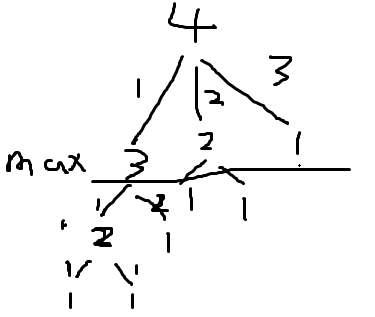 4
1 2 3
max 3 2 1
1 2 1 1
2 1
1 1
1 1